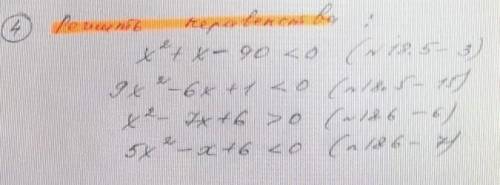 ④ Решить неравенства:
x² + x - 90 < 0 (~18.5-3)
9x² - 6x + 1 < 0 (~18.5-15)
x² - 7x + 6 > 0 (~18.6-6)
5x² - x + 6 < 0 (~18.6-7)